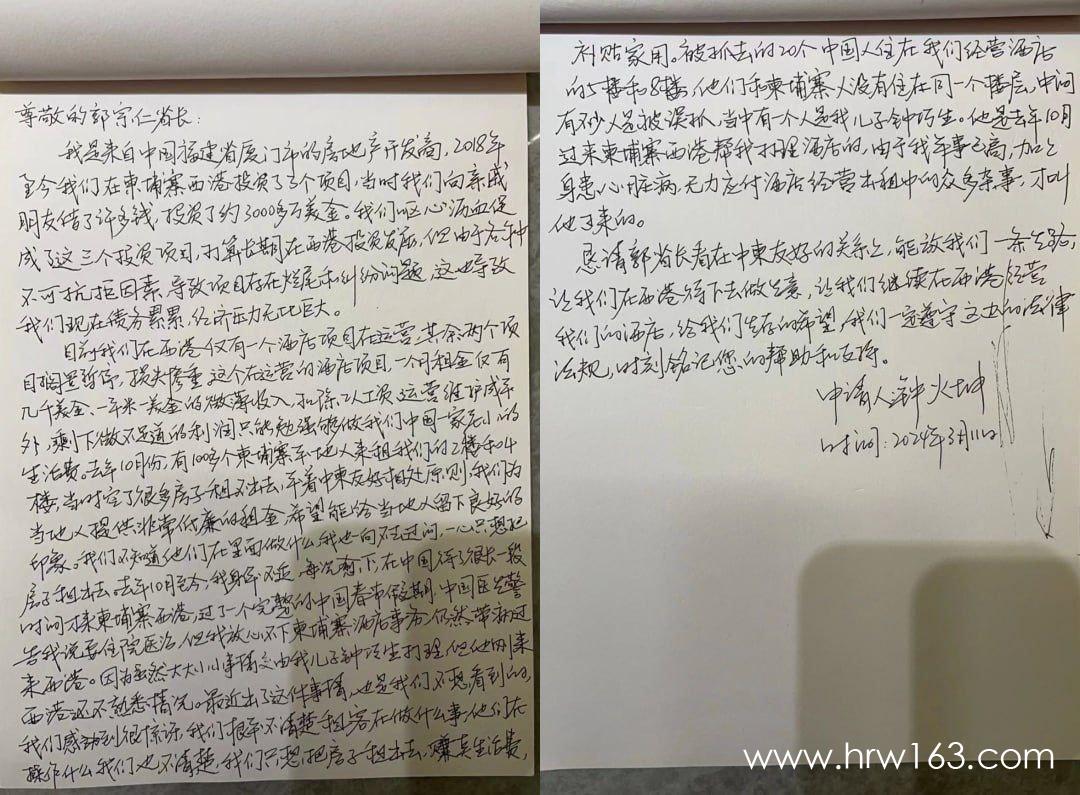 尊敬的郭宗仁省长:
我是来自中国福建省厦门市的房地产开发商,2018年
至今我们在柬埔寨西港投资了3个项目,当时我们向亲戚
朋友借了许多钱,投资了约3000多万美金。我们呕心沥血促
成了这三个投资项目,打算长期在西港投资发展,但由于各种
不可抗拒因素,导致项目存在烂尾和纠纷问题,这也导致
我们现在债务累累,经济压力无比巨大。
目前我们在西港仅有一个酒店项目在运营,其余两个项
目搁置暂停,损失惨重。这个在运营的酒店项目,一个月租金仅有
几千美金、一万来美金的微薄收入,扣除工人工资、运营维护成本
外,剩下微不足道的利润只能勉强够做我们中国一家老小的
生活费。去年10月份,有100多个柬埔寨本地人来租我们的2楼和4
楼,当时空了很多房子租不出去,本着中柬友好相处原则,我们为
当地人提供非常低廉的租金,希望能给当地人留下良好的
印象。我们不知道他们在里面做什么,我也一向不去过问,一心只想把
房子租出去。去年10月至今,我身体不适,每况愈下,在中国待了很长一段
时间才来柬埔寨西港,过了一个完整的中国春节假期,中国医生警
告我说要住院医治,但我放心不下柬埔寨酒店事务,仍然带病过
来西港。因为虽然大大小小事情交由我儿子钟巧生打理,但他刚来
西港还不熟悉情况。最近出了这件事情,也是我们不想看到的,
我们感到很惊讶,我们根本不清楚租客在做什么事,他们在
操作什么我们也不清楚,我们只想把房子租出去,赚其生活费,
补贴家用。被抓去的20个中国人住在我们经营酒店
的5楼和8楼,他们和柬埔寨人没有住在同一个楼层,中间
有不少人是被误抓,当中有一个人是我儿子钟巧生。他是去年10月
过来柬埔寨西港帮我打理酒店的,由于我年事已高,加之
身患心脏病,无力应付酒店经营出租中的众多杂事,才叫
他过来的。
恳请郭省长看在中柬友好的关系上,能放我们一条生路,
让我们在西港待下去做生意,让我们继续在西港经营
我们的酒店,给我们生存的希望,我们一定遵守这边的法律
法规,时刻铭记您的帮助和支持。
申请人:钟火坤
时间:2024年3月11日
www.hrw163.com